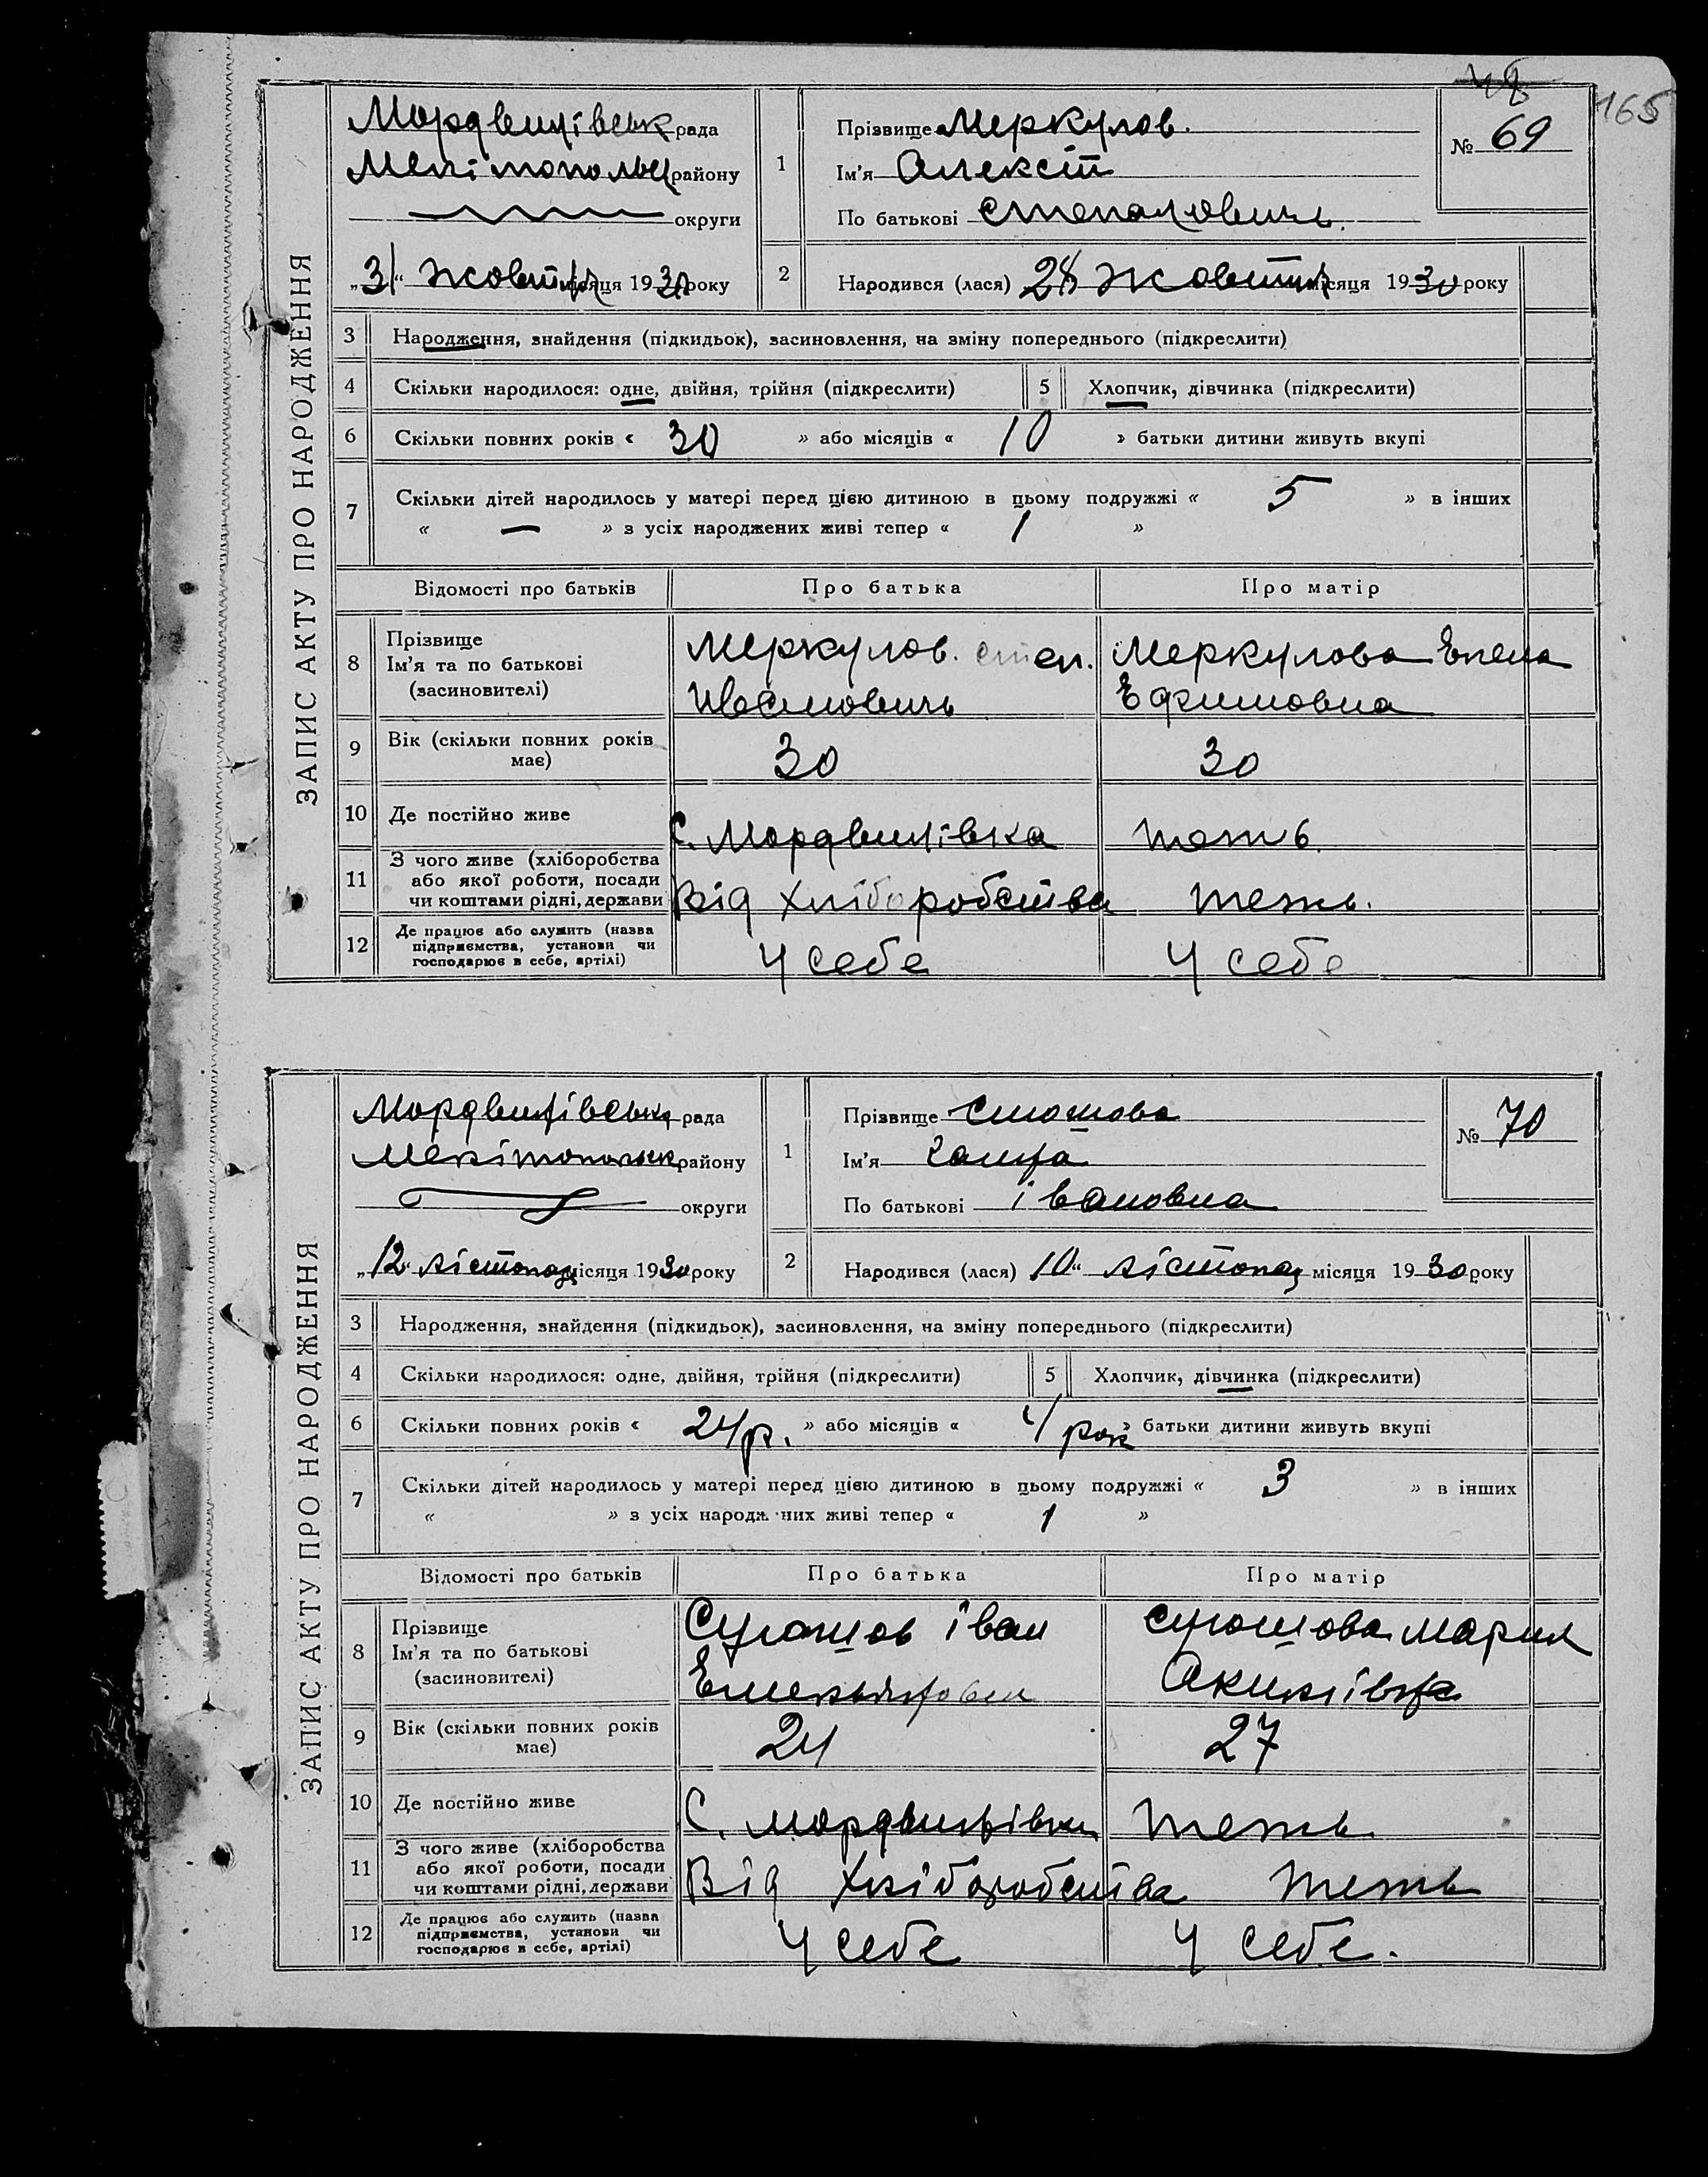 165
ЗАПИС АКТУ ПРО НАРОДЖЕННЯ
Мордвинівськ рада
Мелітопольц району
округи
„31“ жовтня місяця 1930 року
1
Прізвище Меркулов.
Ім'я Алексій
По батькові Степановичь.
№ 69
2
Народився (лася) 28 жовтня місяця 1930 року
3 Народження, знайдення (підкидьок), засиновлення, на зміну попереднього (підкреслити)
4 Скільки народилося: одне, двійня, трійня (підкреслити) 5 Хлопчик, дівчинка (підкреслити)
6 Скільки повних років « 30 » або місяців « 10 » батьки дитини живуть вкупі
7 Скільки дітей народилось у матері перед цією дитиною в цьому подружжі « 5 » в інших
« — » з усіх народжених живі тепер « 1 »
Відомості про батьків Про батька Про матір
8 Прізвище
Ім'я та по батькові
(засиновителі)
Меркулов. Степ.
Ивановичь
Меркулова Елена
Ефимовна
9 Вік (скільки повних років
має)
30 30
10 Де постійно живе С. Мордвинівка тежь
11 З чого живе (хліборобства
або якої роботи, посади
чи коштами рідні, держави
Від хліборобства тежь.
12 Де працює або служить (назва
підприємства, установи чи
господарює в себе, артілі)
У себе У себе
ЗАПИС АКТУ ПРО НАРОДЖЕННЯ
Мордвинівська рада
Мелітопольск району
округи
„12“ лістопад місяця 1930 року
1
Прізвище
Ім'я
По батькові івановна
№ 70
2
Народився (лася) 10“ лістопад місяця 1930 року
3 Народження, знайдення (підкидьок), засиновлення, на зміну попереднього (підкреслити)
4 Скільки народилося: одне, двійня, трійня (підкреслити) 5 Хлопчик, дівчинка (підкреслити)
6 Скільки повних років « 24 р. » або місяців « 4 рок » батьки дитини живуть вкупі
7 Скільки дітей народилось у матері перед цією дитиною в цьому подружжі « 3 » в інших
« » з усіх народж них живі тепер « 1 »
Відомості про батьків Про батька Про матір
8 Прізвище
Ім'я та по батькові
(засиновителі)
іван
Мария
9 Вік (скільки повних років
має)
24 27
10 Де постійно живе С. Мордвинівки тежь
11 З чого живе (хліборобства
або якої роботи, посади
чи коштами рідні, держави
Від хліборобства тежь
12 Де працює або служить (назва
підприємства, установи чи
господарює в себе, артілі)
У себе У себе.